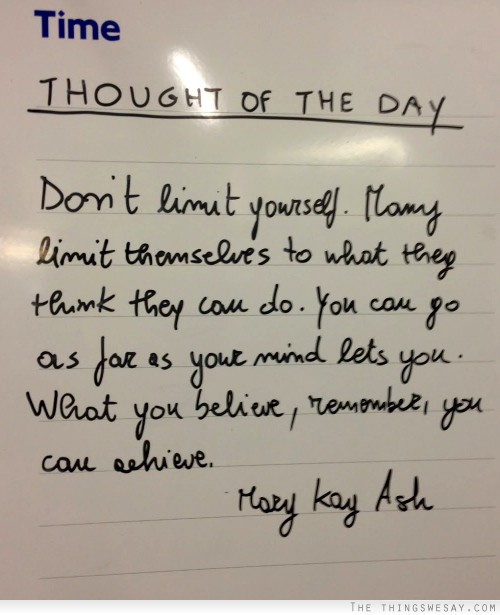 Time
THOUGHT OF THE DAY
Don't limit yourself. Many
limit themselves to what they
think they can do. You can go
as far as your mind lets you.
What you believe, remember, you
can achieve.
Mary Kay Ash
THE THINGSWESAY.COM